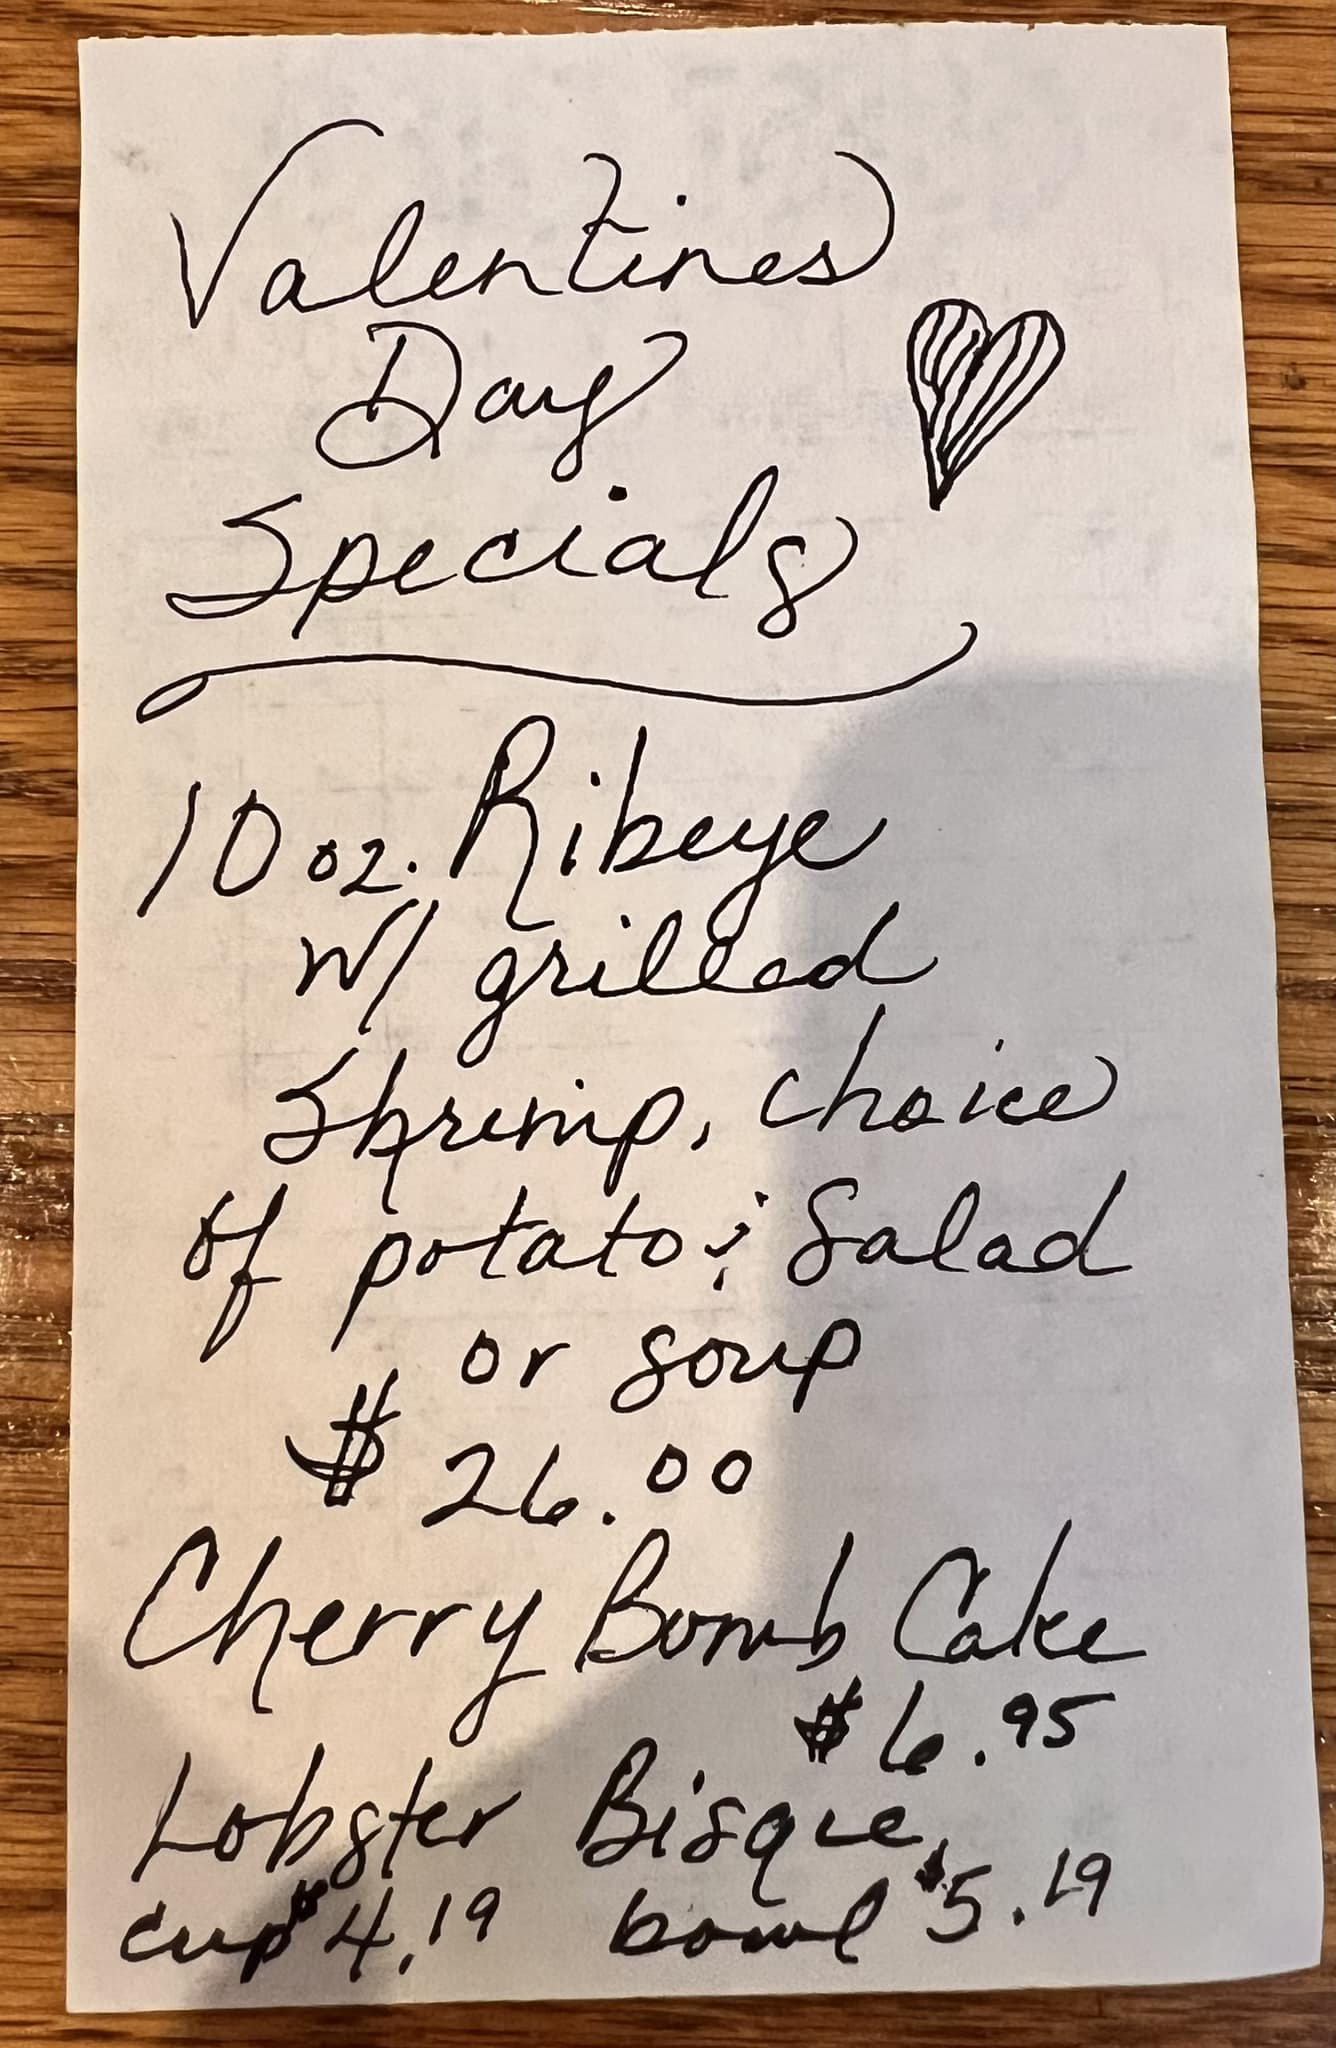 Valentines
Day
Specials
10 oz. Ribeye
w/ grilled
Shrimp, choice
of potato & Salad
or soup
$26.00
Cherry Bomb Cake
$6.95
Lobster Bisque,
cup $4.19 bowl $5.19